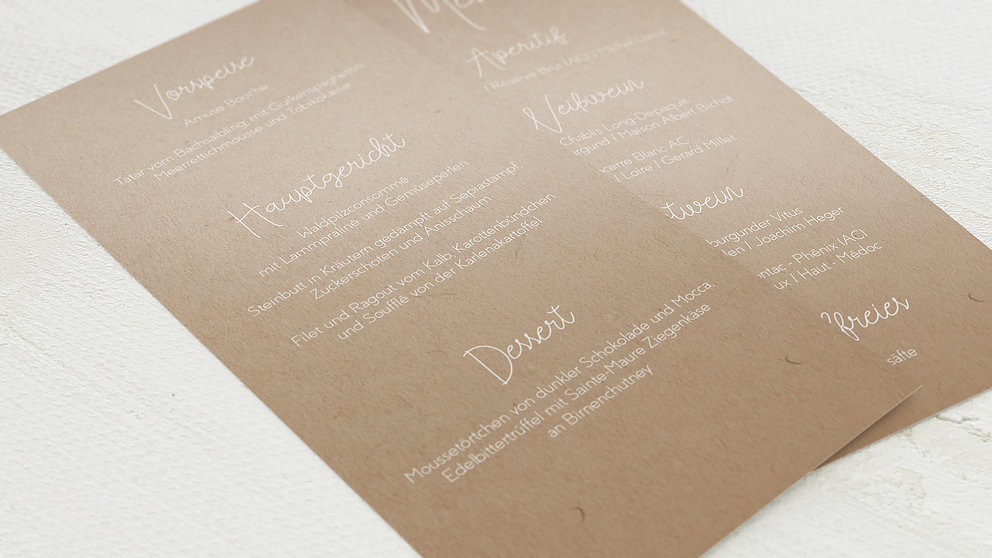 Vorspeise
Amuse Bouche
Tatar vom Bachsaibling mit Gurkenspaghettini
Meerrettichmousse und Tobikokaviar
Hauptgericht
Waldpilzconsommé
mit Lammpraline und Gemüseperlen
Steinbutt in Kräutern gedämpft auf Sepiastampf
Zuckerschoten und Anisschaum
Filet und Ragout vom Kalb, Karottenbündchen
und Soufflé von der Karlenakartoffel
Dessert
Moussetörtchen von dunkler Schokolade und Mocca,
Edelbittertrüffel mit Sainte-Maure Ziegenkäse
an Birnenchutney
Aperitif
Réserve Brut (AC) /
Weißwein
Chablis Long-Depaquit
/ Maison Albert Bichot
Blanc AC
/ Loire / Gerard Millet
twein
burgunder Vitus
/ Joachim Heger
- Phénix (AC)
/ Haut - Médoc
freies
säfte